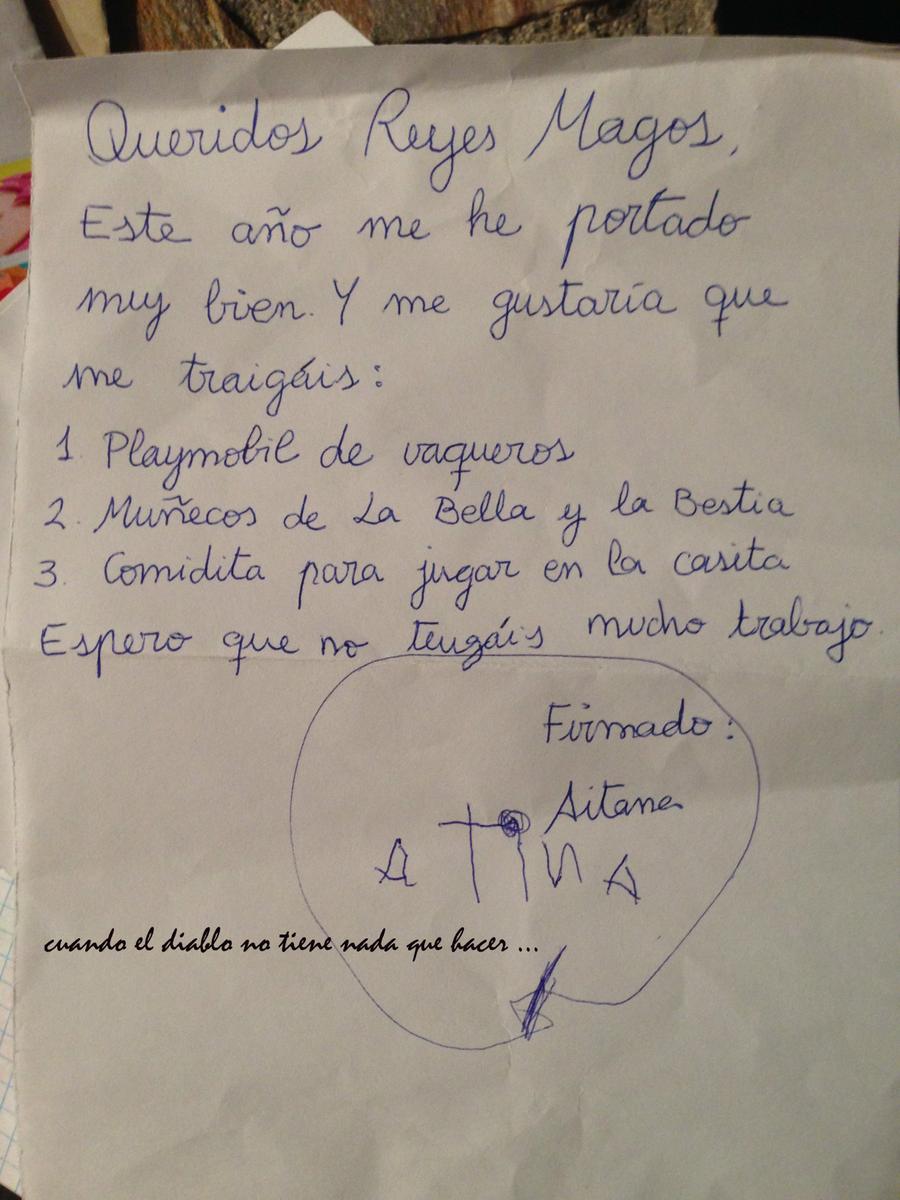 Queridos Reyes Magos,
Este año me he portado
muy bien. Y me gustaría que
me traigáis:
1. Playmobil de vaqueros
2. Muñecos de La Bella y la Bestia
3. Comidita para jugar en la casita
Espero que no tengáis mucho trabajo.
Firmado:
Aitana
A T I N A
cuando el diablo no tiene nada que hacer ...